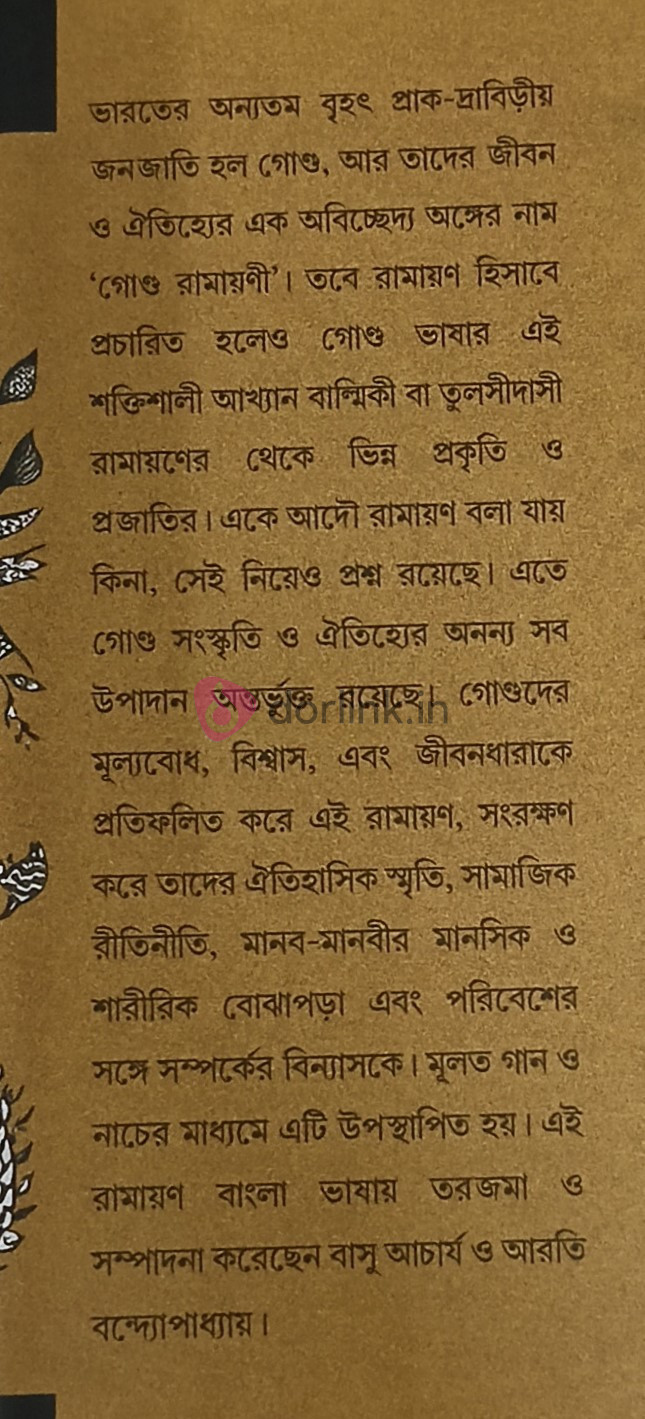 ভারতের অন্যতম বৃহৎ প্রাক-দ্রাবিড়ীয়
জনজাতি হল গোণ্ড, আর তাদের জীবন
ও ঐতিহ্যের এক অবিচ্ছেদ্য অঙ্গের নাম
‘গোণ্ড রামায়ণী’। তবে রামায়ণ হিসাবে
প্রচারিত হলেও গোণ্ড ভাষার এই
শক্তিশালী আখ্যান বাল্মিকী বা তুলসীদাসী
রামায়ণের থেকে ভিন্ন প্রকৃতি ও
প্রজাতির। একে আদৌ রামায়ণ বলা যায়
কিনা, সেই নিয়েও প্রশ্ন রয়েছে। এতে
গোণ্ড সংস্কৃতি ও ঐতিহ্যের অনন্য সব
উপাদান অন্তর্ভুক্ত রয়েছে। গোণ্ডদের
dorlink.in
মূল্যবোধ, বিশ্বাস, এবং জীবনধারাকে
প্রতিফলিত করে এই রামায়ণ, সংরক্ষণ
করে তাদের ঐতিহাসিক স্মৃতি, সামাজিক
রীতিনীতি, মানব-মানবীর মানসিক ও
শারীরিক বোঝাপড়া এবং পরিবেশের
সঙ্গে সম্পর্কের বিন্যাসকে। মূলত গান ও
নাচের মাধ্যমে এটি উপস্থাপিত হয়। এই
রামায়ণ বাংলা ভাষায় তরজমা ও
সম্পাদনা করেছেন বাসু আচার্য ও আরতি
বন্দ্যোপাধ্যায়।